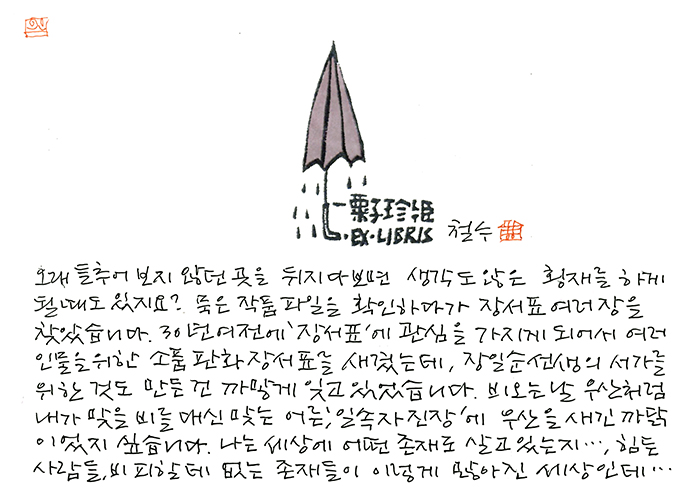 一粟子珍藏
EX·LIBRIS
철수
오래 들추어 보지 않던 곳을 뒤지다보면 생각도 않은 횡재를 하게
될때도 있지요? 묵은 작품파일을 확인하다가 장서표 여러장을
찾았습니다. 30년여전에 '장서표'에 관심을 가지게 되어서 여러
인물을 위한 소품 판화 장서표를 새겼는데, 장일순선생의 서가를
위한 것도 만든 건 까맣게 잊고 있었습니다. 비오는 날 우산처럼
내가 맞을 비를 대신 맞는 어른; '일속자진장'에 우산을 새긴 까닭
이었지 싶습니다. 나는 세상에 어떤 존재로 살고 있는지…, 힘든
사람들, 비 피할데 없는 존재들이 이렇게 많아진 세상인데…